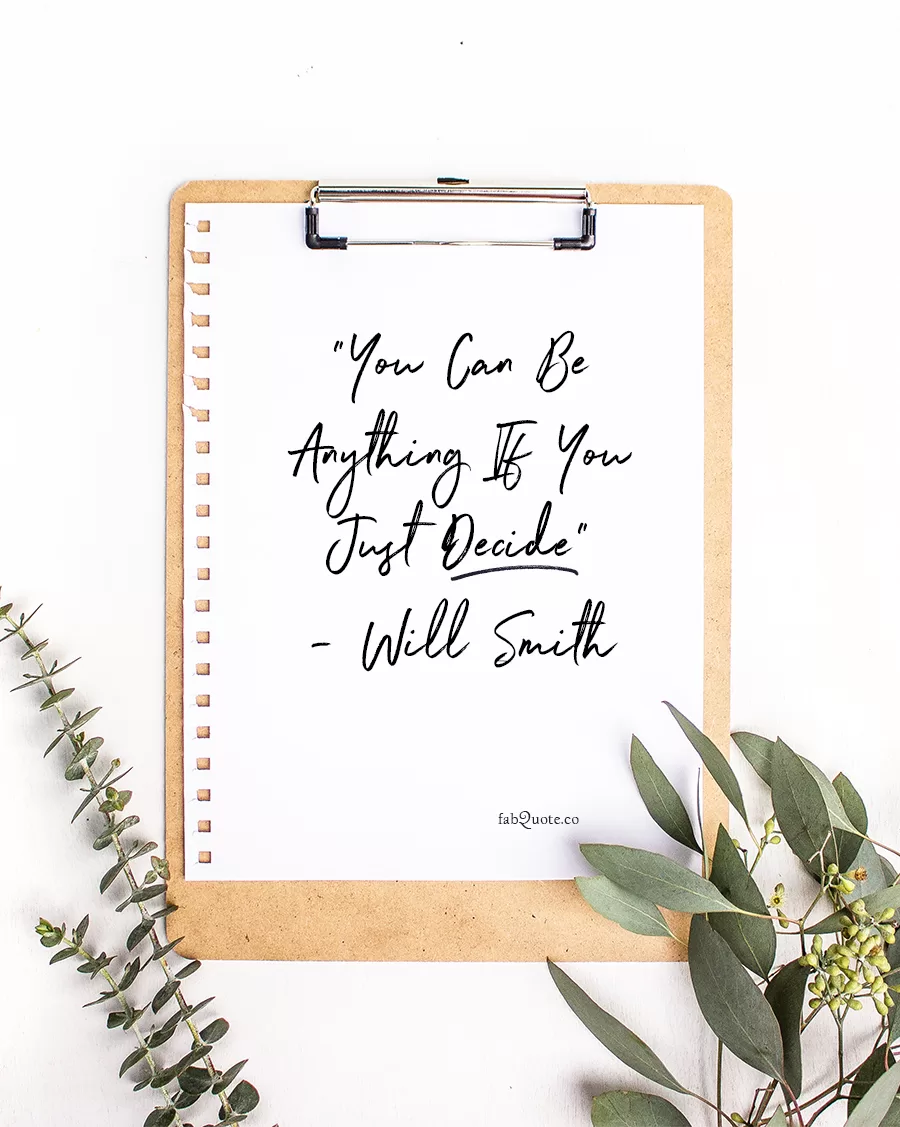 "You Can Be
Anything If You
Just Decide"
- Will Smith
fabQuote.co